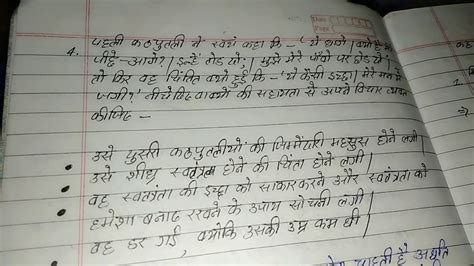 4. पहली कठपुतली ने स्वयं कहा कि - 'ये धागे / क्यों है मेरे
पीछे-आगे? / इन्हें तोड़ दो; / मुझे मेरे पाँवों पर छोड़ दो।'
तो फिर वह चिंतित क्यों हुई कि - 'ये कैसी इच्छा / मेरे मन में
जगी?' नीचे दिए वाक्यों की सहायता से अपने विचार व्यक्त
कीजिए -
• उसे दूसरी कठपुतलीयों की जिम्मेदारी महसूस होने लगी।
• उसे शीघ्र स्वतंत्र होने की चिंता होने लगी।
• वह स्वतंत्रता की इच्छा को साकार करने और स्वतंत्रता को
हमेशा बनाए रखने के उपाय सोचने लगी।
• वह डर गई, क्योंकि उसकी उम्र कम थी।
चाहती है अर्थात